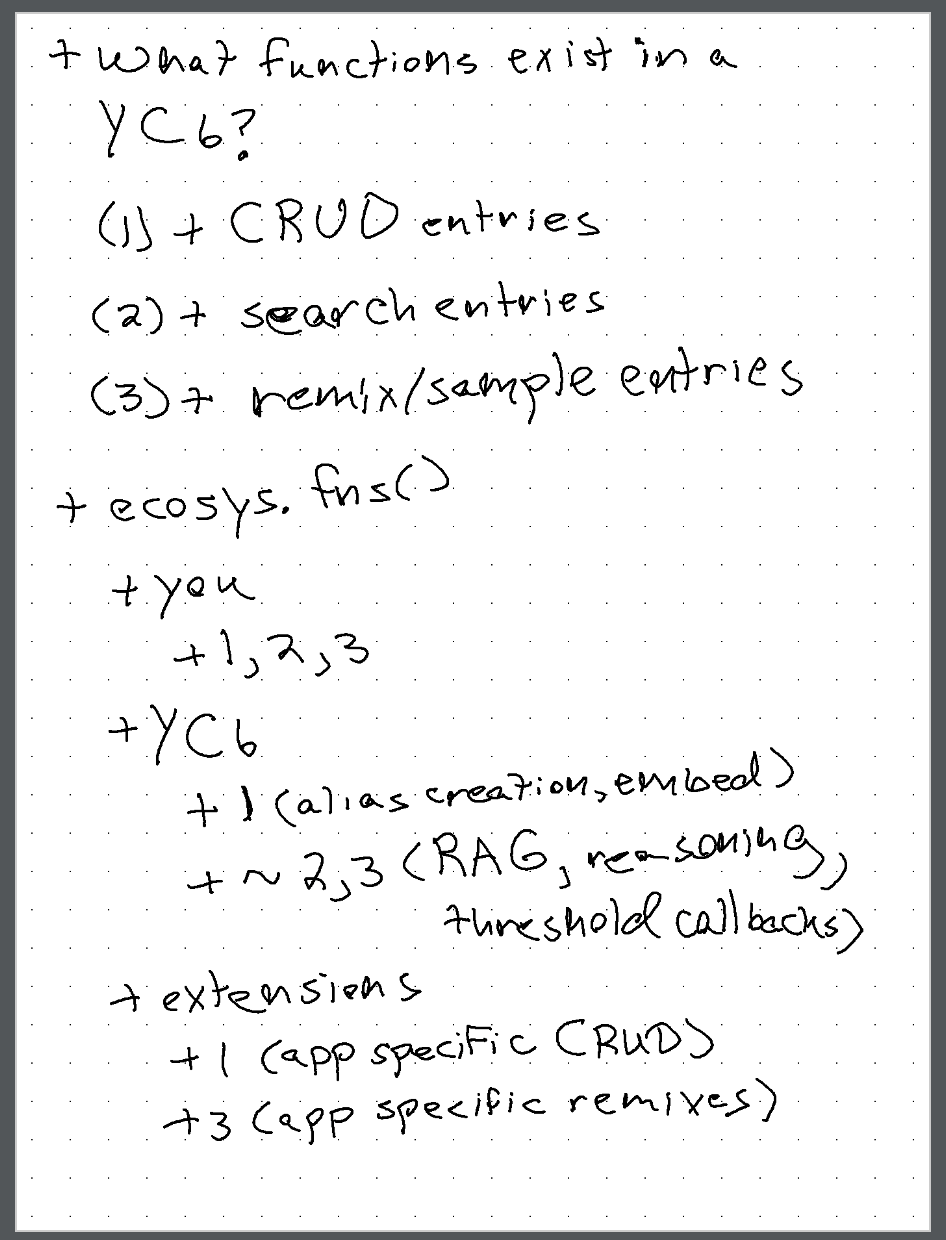 + what functions exist in a
YCb?
(1) + CRUD entries
(2) + search entries
(3) + remix/sample entries
+ ecosys. fns()
+ you
+ 1, 2, 3
+ YCb
+ 1 (alias creation, embed)
+ ~ 2, 3 (RAG, reasoning,
threshold callbacks)
+ extensions
+ 1 (app specific CRUD)
+ 3 (app specific remixes)